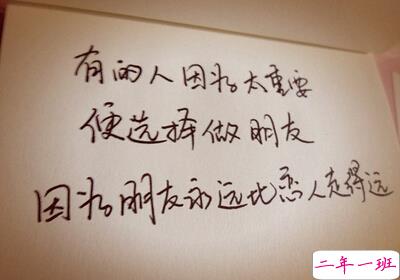 有的人因为太重要
便选择做朋友
因为朋友永远比恋人走得远
二年一班